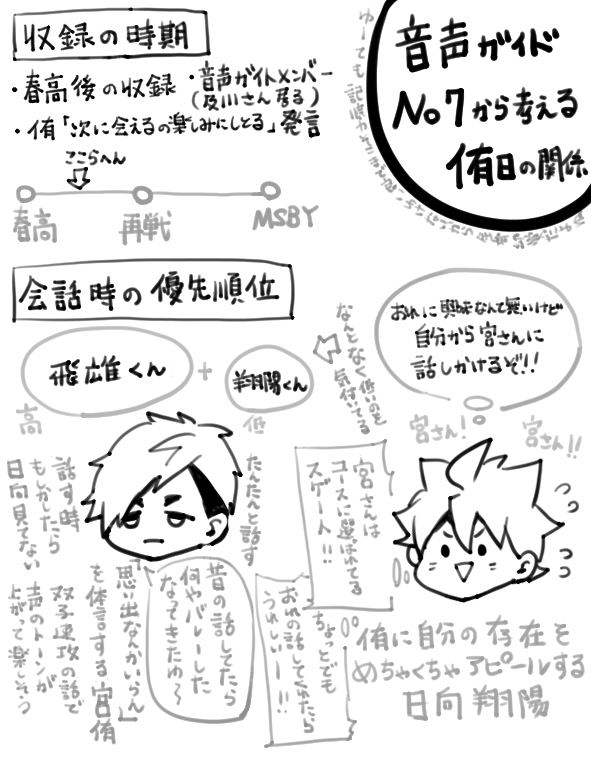 音声ガイド
No7から考える
侑日の関係
収録の時期
・春高後の収録
・音声ガイドメンバー
(及川さん居る)
・侑「次に会えるの楽しみにしとる」発言
ここらへん
春高
再戦
MSBY
会話時の優先順位
飛雄くん
+
翔陽くん
高
低
なんとなく低いのを
気付いてる
おれに興味なんて無いけど
自分から宮さんに
話しかけるぞ!!
宮さん!
宮さん!!
たんたんと話す
話す時
もしかしたら
日向見てない
宮さんは
コースに選ばれてる
スゲート!!
ちょっとでも
おれの話してくれたら
うれしいー!!
昔の話してたら
何やバレーした
なってきたゆ〜
「思い出なんかいらん」
を体言する宮侑
双子速攻の話で
声のトーンが
上がって楽しそう
侑に自分の存在を
めちゃくちゃアピールする
日向翔陽